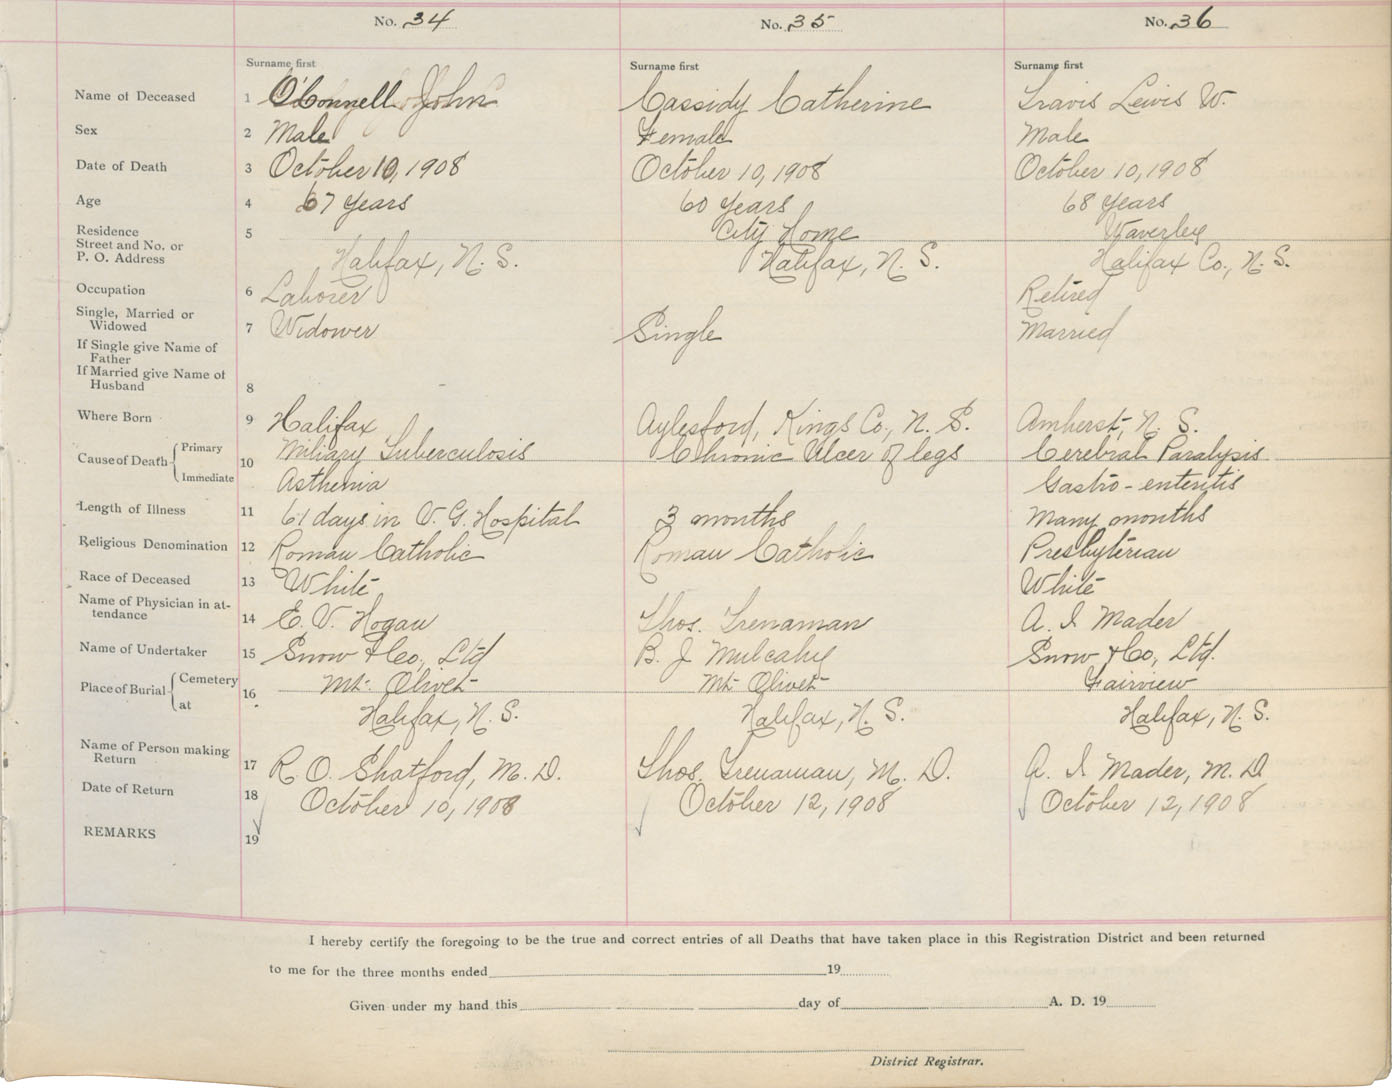 No. 34 No. 35 No. 36
Surname first Surname first Surname first
Name of Deceased 1 O'Connell John Cassidy Catherine Travis Lewis W.
Sex 2 Male Female Male
Date of Death 3 October 10, 1908 October 10, 1908 October 10, 1908
Age 4 67 years 60 years 68 years
Residence 5 City Home Waverley
Street and No. or
P. O. Address Halifax, N. S. Halifax, N. S. Halifax Co., N. S.
Occupation 6 Laborer Retired
Single, Married or
Widowed 7 Widower Single Married
If Single give Name of
Father
If Married give Name of
Husband 8
Where Born 9 Halifax Aylesford, Kings Co., N. S. Amherst, N. S.
Cause of Death Primary 10 Miliary Tuberculosis Chronic Ulcer of legs Cerebral Paralysis
Immediate Asthenia Gastro-enteritis
Length of Illness 11 61 days in V. G. Hospital 3 months Many months
Religious Denomination 12 Roman Catholic Roman Catholic Presbyterian
Race of Deceased 13 White White
Name of Physician in at-
tendance 14 E. V. Hogan Thos. Trenaman A. I. Mader
Name of Undertaker 15 Snow & Co., Ltd B. J. Mulcahy Snow & Co, Ltd.
Place of Burial Cemetery 16 Mt. Olivet Mt. Olivet Fairview
at Halifax, N. S. Halifax, N. S. Halifax, N. S.
Name of Person making
Return 17 R. O. Shatford, M. D. Thos. Trenaman, M. D. A. I. Mader, M. D
Date of Return 18 October 10, 1908 October 12, 1908 October 12, 1908
REMARKS 19
I hereby certify the foregoing to be the true and correct entries of all Deaths that have taken place in this Registration District and been returned
to me for the three months ended 19
Given under my hand this day of A. D. 19
District Registrar.